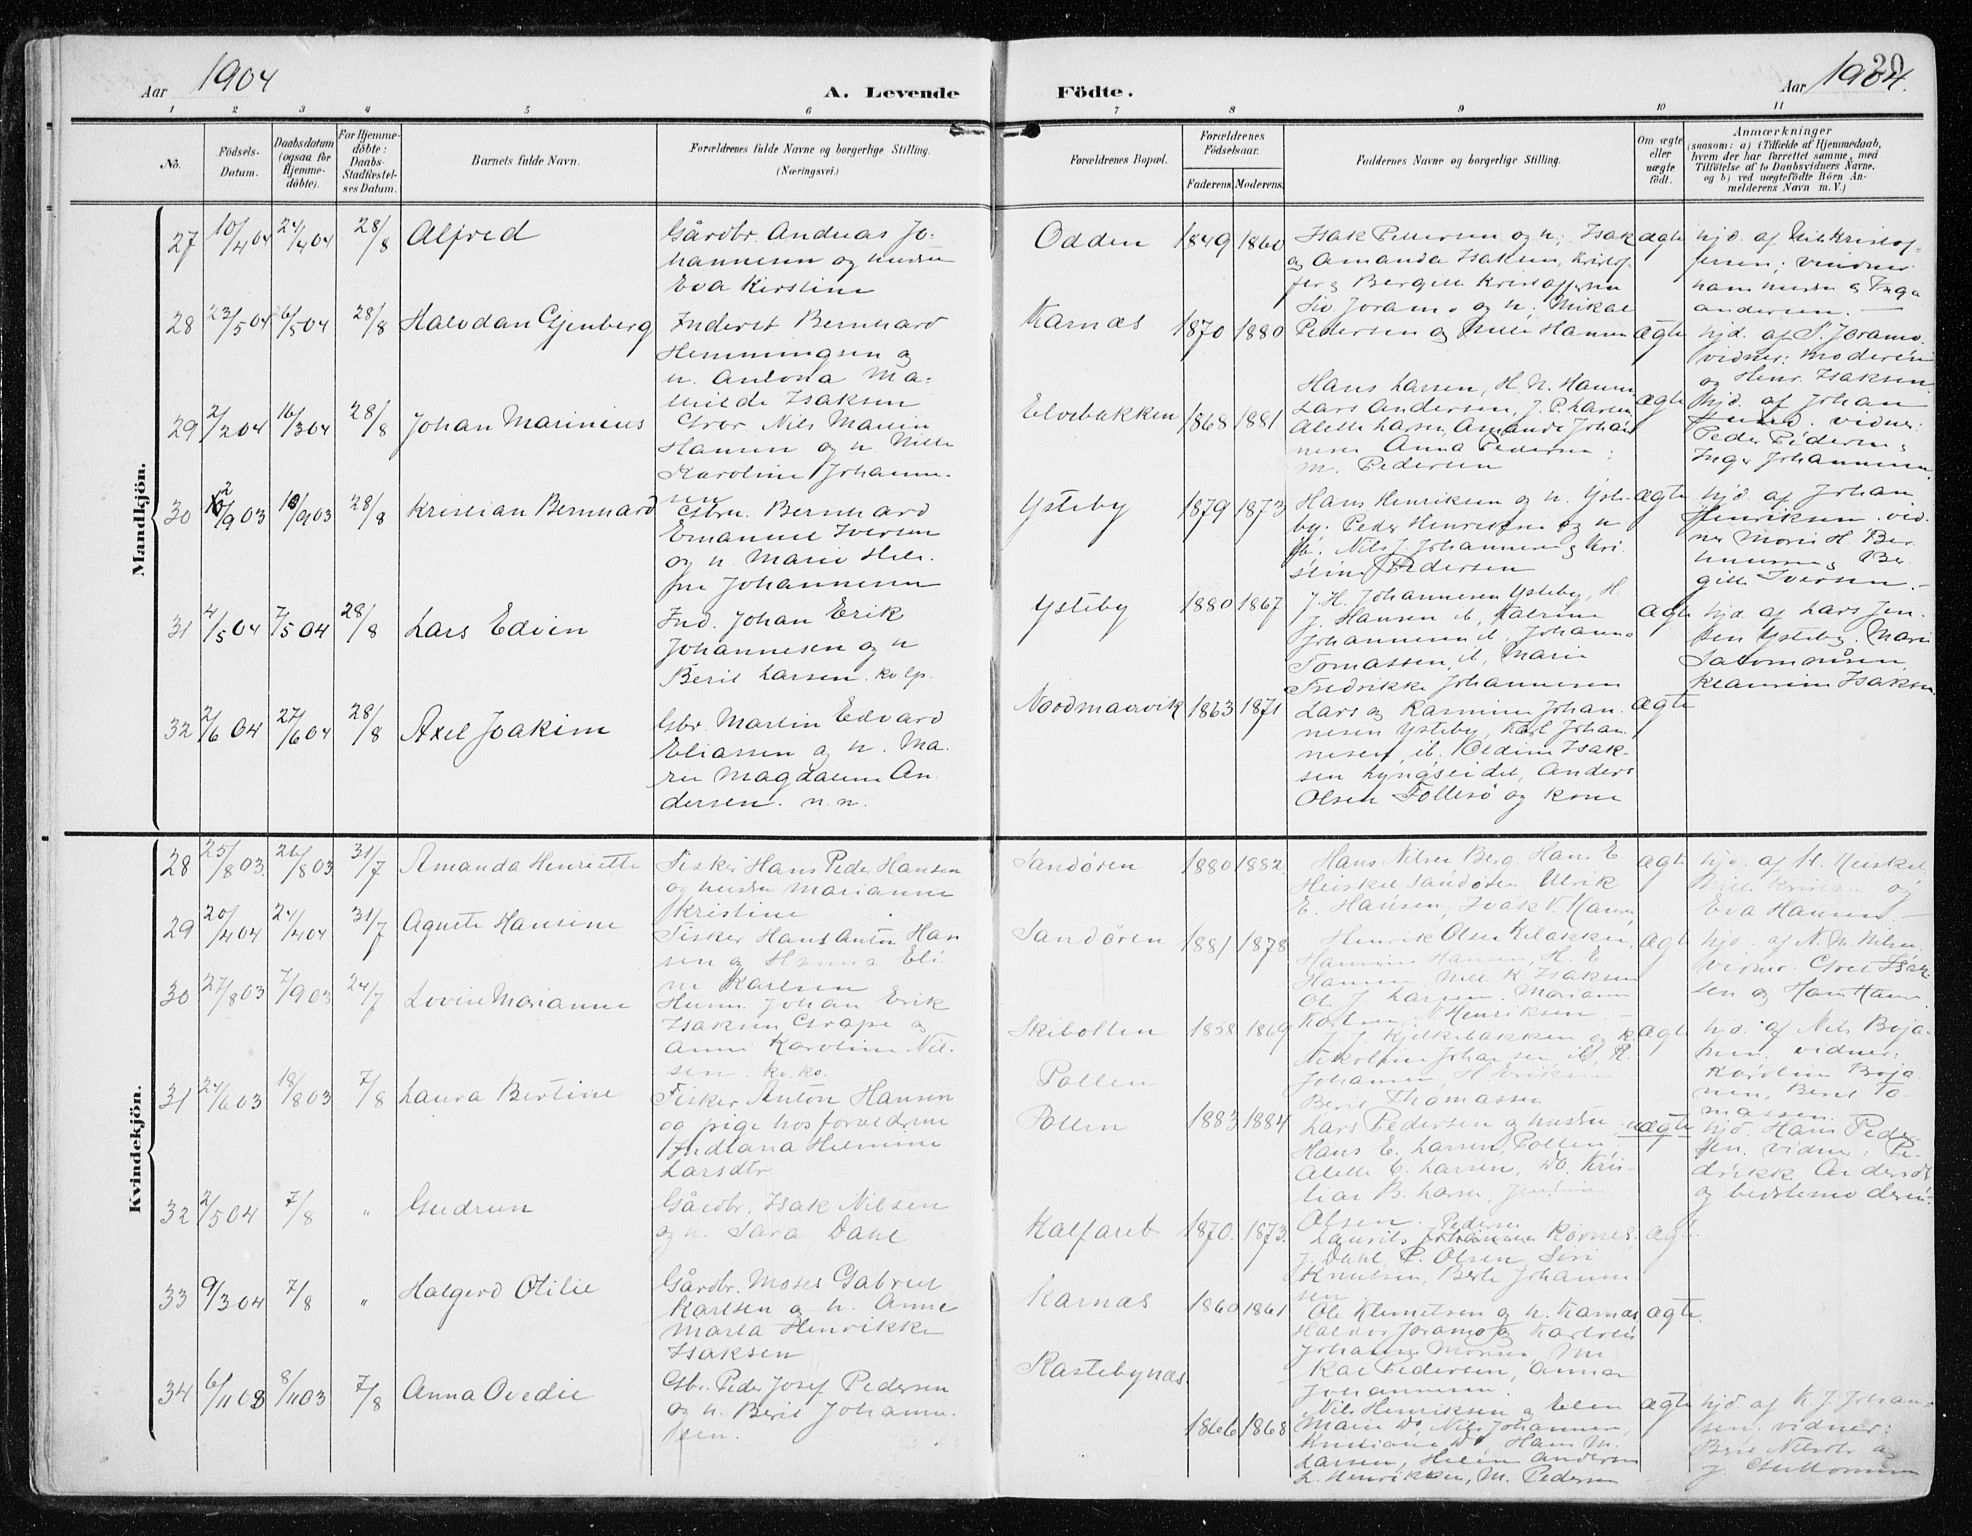 Aar 1904
A. Levende Födte.
Aar 1904.
20
1 2 3 4 5 6 7 8 9 10 11
No.
Födsels-
Datum.
Daabsdatum
(ogsaa for
Hjemme-
döbte).
For Hjemme-
döbte:
Daabs-
Stadfæstel-
ses Datum.
Barnets fulde Navn.
Forældrenes fulde Navne og borgerlige Stilling.
(Næringsvei.)
Forældrenes Bopæl.
Forældrenes
Födselsaar.
Faderens. Moderens.
Faddernes Navne og borgerlige Stilling.
Om ægte
eller
uægte
födt.
Anmærkninger
(saasom: a) i Tilfælde af Hjemmedaab,
hvem der har forrettet samme, med
Tilföielse af to Daabsvidners Navne,
og b) ved uægtefödte Börn An-
melderens Navn m. V.)
Mandkjön.
27 10/4 04 24/4 04 28/8 Alfred
Gårdbr. Andreas Jo-
hannesen og hustru
Eva Kirstine
Odden 1849 1860
Isak Pettersen og h; Isak
og Amanda Isaksen, Kristof-
fer og Bergitt Kristoffersen
ægte
hjd. af Nils Kristof-
fersen; vidner
hans hustru & Inga
andersen.
28 23/5 04 26/5 04 28/8 Halvdan Gjenberg
Inderst Bernhard
Hemmingsen og
h. Antona Ma-
thilde Isaksen
Karnæs 1870 1880
Siv Joramo og h, Mikal
Pedersen og Hansen
ægte
hjd. af S. Joramo.
vidner: moderen
og Henr. Isaksen
29 2/2 04 16/3 04 28/8 Johan Marinius
Gbr. Nils Martin
Hansen og h Nille
Karoline Johanne-
sen
Elvebakken 1868 1881
Hans Larsen, H. N. Hansen
Lars Andersen, J. P. Larsen
Alette Larsen, Amanda Johan-
nesen Anna Pedersen;
M. Pedersen
ægte
hjd. af Johan
vidner:
Peder Pedersen &
Inger Johannesen
30 2/9 03 10/9 03 28/8 Kristian Bernhard
Gbr. Bernhard
Emanuel Iversen
og h. Marie Hele-
ne Johannesen
Ysteby 1879 1873
Hans Henriksen og h. Yste-
by. Peder Henriksen og h
ib. Nils J Johannesen & Kri-
stine Pedersen
ægte
hjd. af Johan
Henriksen. vid-
ner Marie H. Ber-
& Be-
gitte Iversen.
31 4/5 04 7/5 04 28/8 Lars Edvin
Ind. Johan Erik
Johannesen og h
Berit Larsen. kv lp.
Ysteby 1880 1867
J. H. Johannesen Ysteby, H.
J. Hansen ib, Katrine
Johannesen ib. Johan
Tomassen, ib, Marie
Fredrikke Johannesen
ægte
hjd af Lars Jen-
sen Ysteby. Marie
Salomonsen,
Isaksen
32 2/6 04 27/6 04 28/8 Axel Joakim
Gbr. Martin Edvard
Eliassen og h. Ma-
rie Magdalene An-
dersen. n.n.
Nordmaarvik 1863 1871
Lars og Rasmine Johan-
nesen Ysteby, Karl Johan-
nesen, ib, Isak-
sen Lyngseidet, Anders
Olsen Follesö og kone
ægte
Kvindekjön.
28 25/8 03. 26/8 03 31/7 Amanda Henriette
Fisker Hans Peder Hansen
og hustru Marianne
Kristine
Sandören 1880 1882
Hans Nilsen Berg, Hans E.
Heiskel Sandören, Ulrik
E. Hansen, Isak V. Hansen
ægte
hjd. af H. Heiskel
og
Eva Hansen.
29 20/4 04 24/4 04 31/7 Agnete Hansine
Fisker Hans Anton Han-
sen og Hanna Eli-
ne Karlsen
Sandören 1881 1878
Henrik Olsen
Hansine Hansen, H. E
Hansen Nille K Isaksen
Ol J. Larsen. Mariann
Karlsen N Henriksen.
ægte
hjd. af N. M. Nilsen
vidner. Isak-
sen og Hans Hansen
30 27/8 03 7/9 03 24/7 Lovise Marianne
Husm. Johan Erik
Isaksen Grape og
Anne Karoline Nil-
sen. kv. kv.
Skibotten 1858 1869
J. J. Kjelkebakken og k
Nikoline Johansen ib, R.
Johansen, H Eriksen
Berit Thomassen
ægte
hjd. af Nils Boja-
nen. vidner:
Karolin Boja-
nen, Berit To-
massen.
Pollen
31 24/6 03 18/8 03 7/8 Laura Bertine
Fisker Anton Hansen
og pige hos forældrene
Indiana Helmine
Larsdtr
Pollen 1883 1884
Lars Pedersen og hustru
Hans E. Larsen, Pollen,
Alette E. Larsen, do. Kris-
tian B. Larsen,
Olsen.
uægte
hjd. Hans Peder-
sen. vidner: Pe-
drikk Andersdt
og bedstemoderen.
32 2/5 04 7/8 " Gudrun
Gårdbr. Isak Nilsen
og h. Sara Dahl
Kalfaret 1870. 1873.
Pedersen
Laurits Johannesen Karnes,
J. Dahl, P. Olsen, Siri
Knutsen, Berte Johanne-
sen
ægte
33 9/3 04 7/8 " Halgerd Otilie
Gårdbr. Moses Gabriel
Karlsen og h. Anne
Marta Henrikke
Isaksen
Karnæs 1860 1861
Ole Klemetsen og h. Karnæs
Haldor Joramo og
Johanne M
Kal Pedersen, Anna
Johannesen.
ægte
34 6/11 03 8/11 03 7/8 Anna Ovedie
Gbr. Peder Josef Pedersen
og h. Berit Johanne-
sen.
Rastebynæs. 1866 1868
Nils Henriksen og Elen
Marie do, Nils Johannesen,
Kristiane do, Hans M.
Larsen, Helene Andersen
L. Henriksen, M. Pedersen
ægte
hjd. af K. J. Johan-
sen. vidner:
Berit Nilsdtr og
J